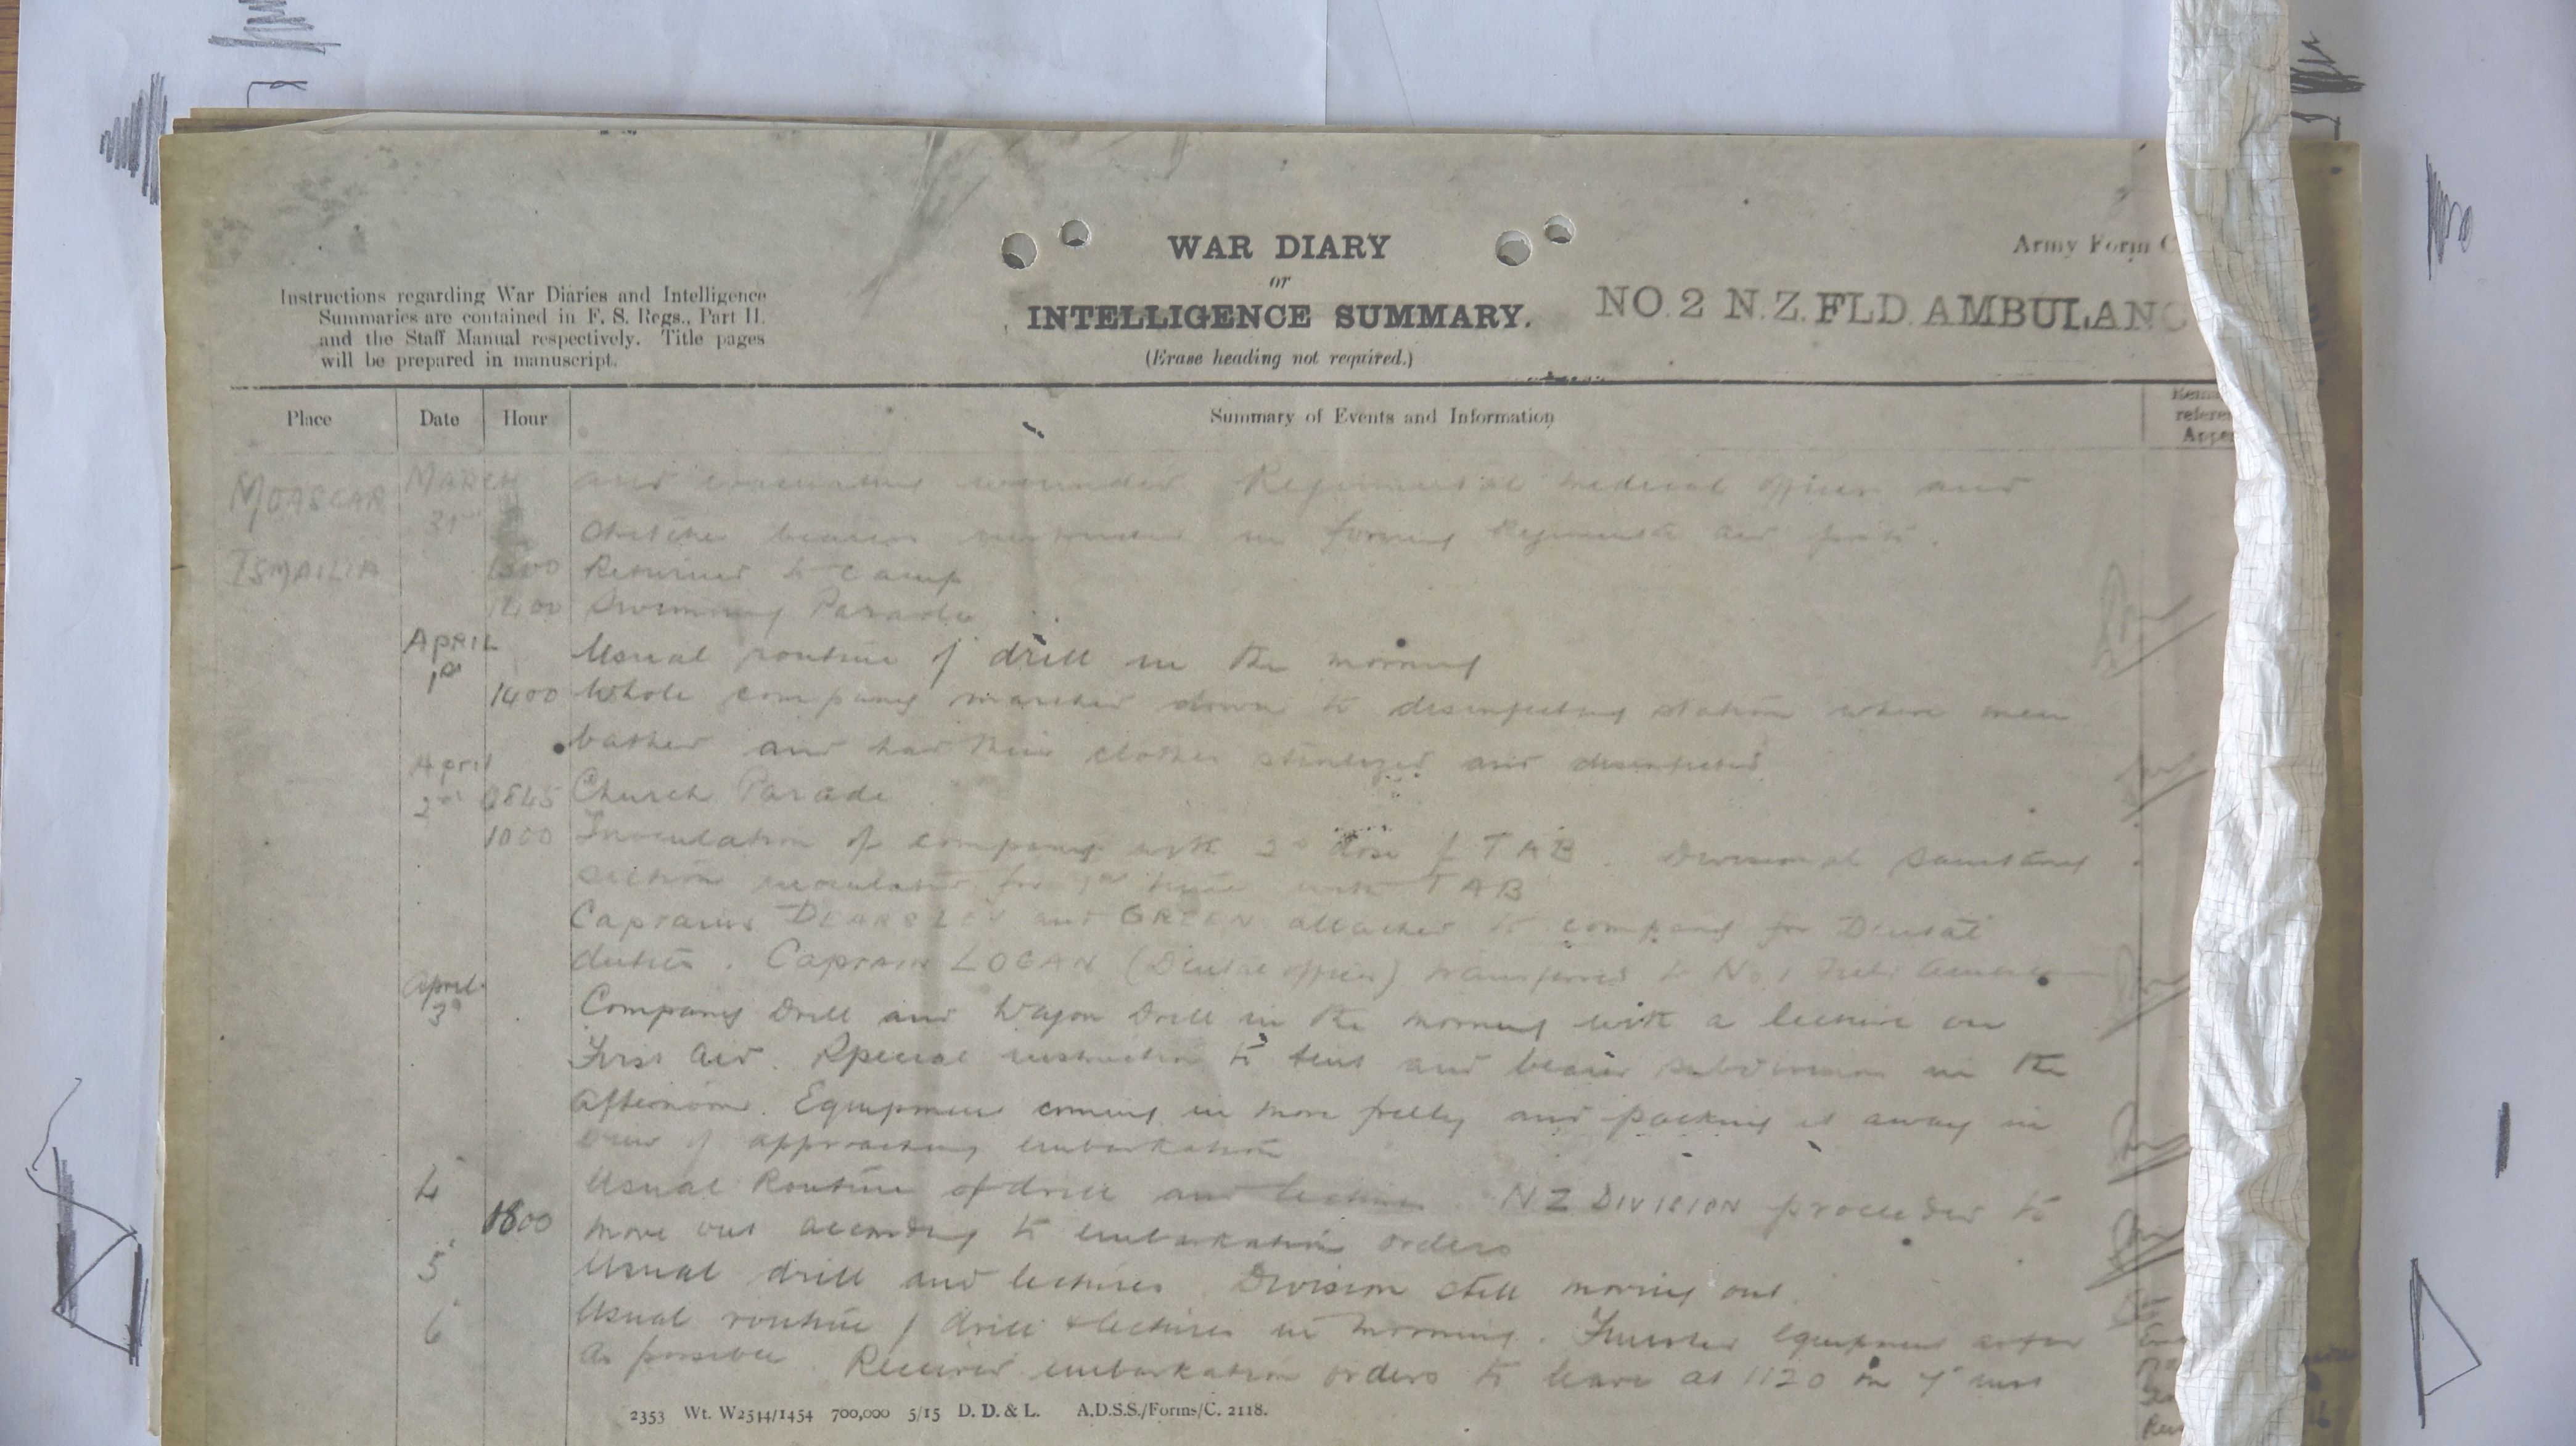 Army Form C
WAR DIARY
or
INTELLIGENCE SUMMARY.
(Erase heading not required.)
NO. 2 N.Z. FLD. AMBULANC
Instructions regarding War Diaries and Intelligence
Summaries are contained in F. S. Regs., Part II.
and the Staff Manual respectively. Title pages
will be prepared in manuscript.
Place Date Hour Summary of Events and Information
MOASCAR MARCH and evacuating wounded Regimental medical officers and
31st stretcher bearers instructed in forming Regimental aid posts.
ISMAILIA 1300 Returned to camp
Swimming Parade
APRIL Usual routine of drill in the morning
1st 1400 Whole company marched down to disinfecting station where men
bathed and had their clothes sterilized and disinfected
April
2nd 0845 Church Parade
1000 Inoculation of company with dose of TAB. Divisional Sanitary
section inoculated for time with TAB
Captains DEARSLEY and GREEN attached to company for Dental
duties. Captain LOGAN (Dental officer) transferred to No 1 Field
April
3d Company Drill and Wagon Drill in the morning with a lecture on
First Aid. Special instruction to tent and bearer subdivision in the
afternoon. Equipment coming in more freely and packing it away in
view of approaching embarkation
4 Usual Routine of drill and lectures. NZ DIVISION proceeded to
1800 move out according to embarkation orders
5 Usual drill and lectures. Division still moving out.
6 Usual routine of drill & lectures in morning. Equipment
as possible. Received embarkation orders to leave at 1120 on 7th inst
2353 Wt. W2544/1454 700,000 5/15 D. D. & L. A.D.S.S./Forms/C. 2118.